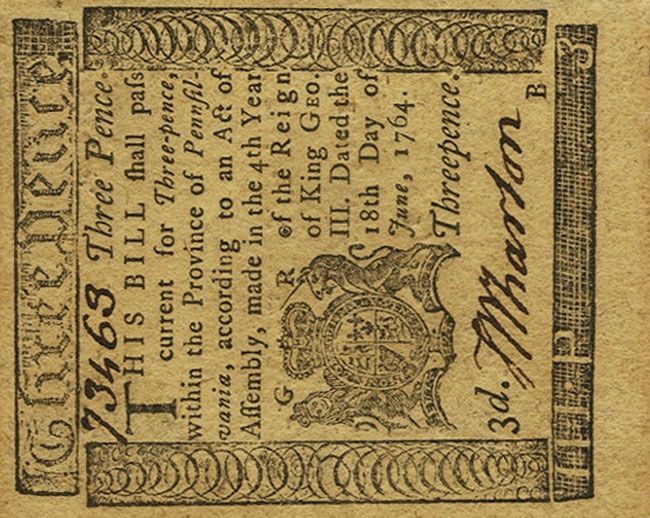 Three Pence.
73463 Three Pence.
THIS BILL ſhall paſs
current for Three-pence,
within the Province of Pennſil-
vania, according to an Act of
Aſſembly, made in the 4th Year
G R of the Reign
of King GEO.
III. Dated the
18th Day of
June, 1764.
Threepence.
3d. Wharton
B
3